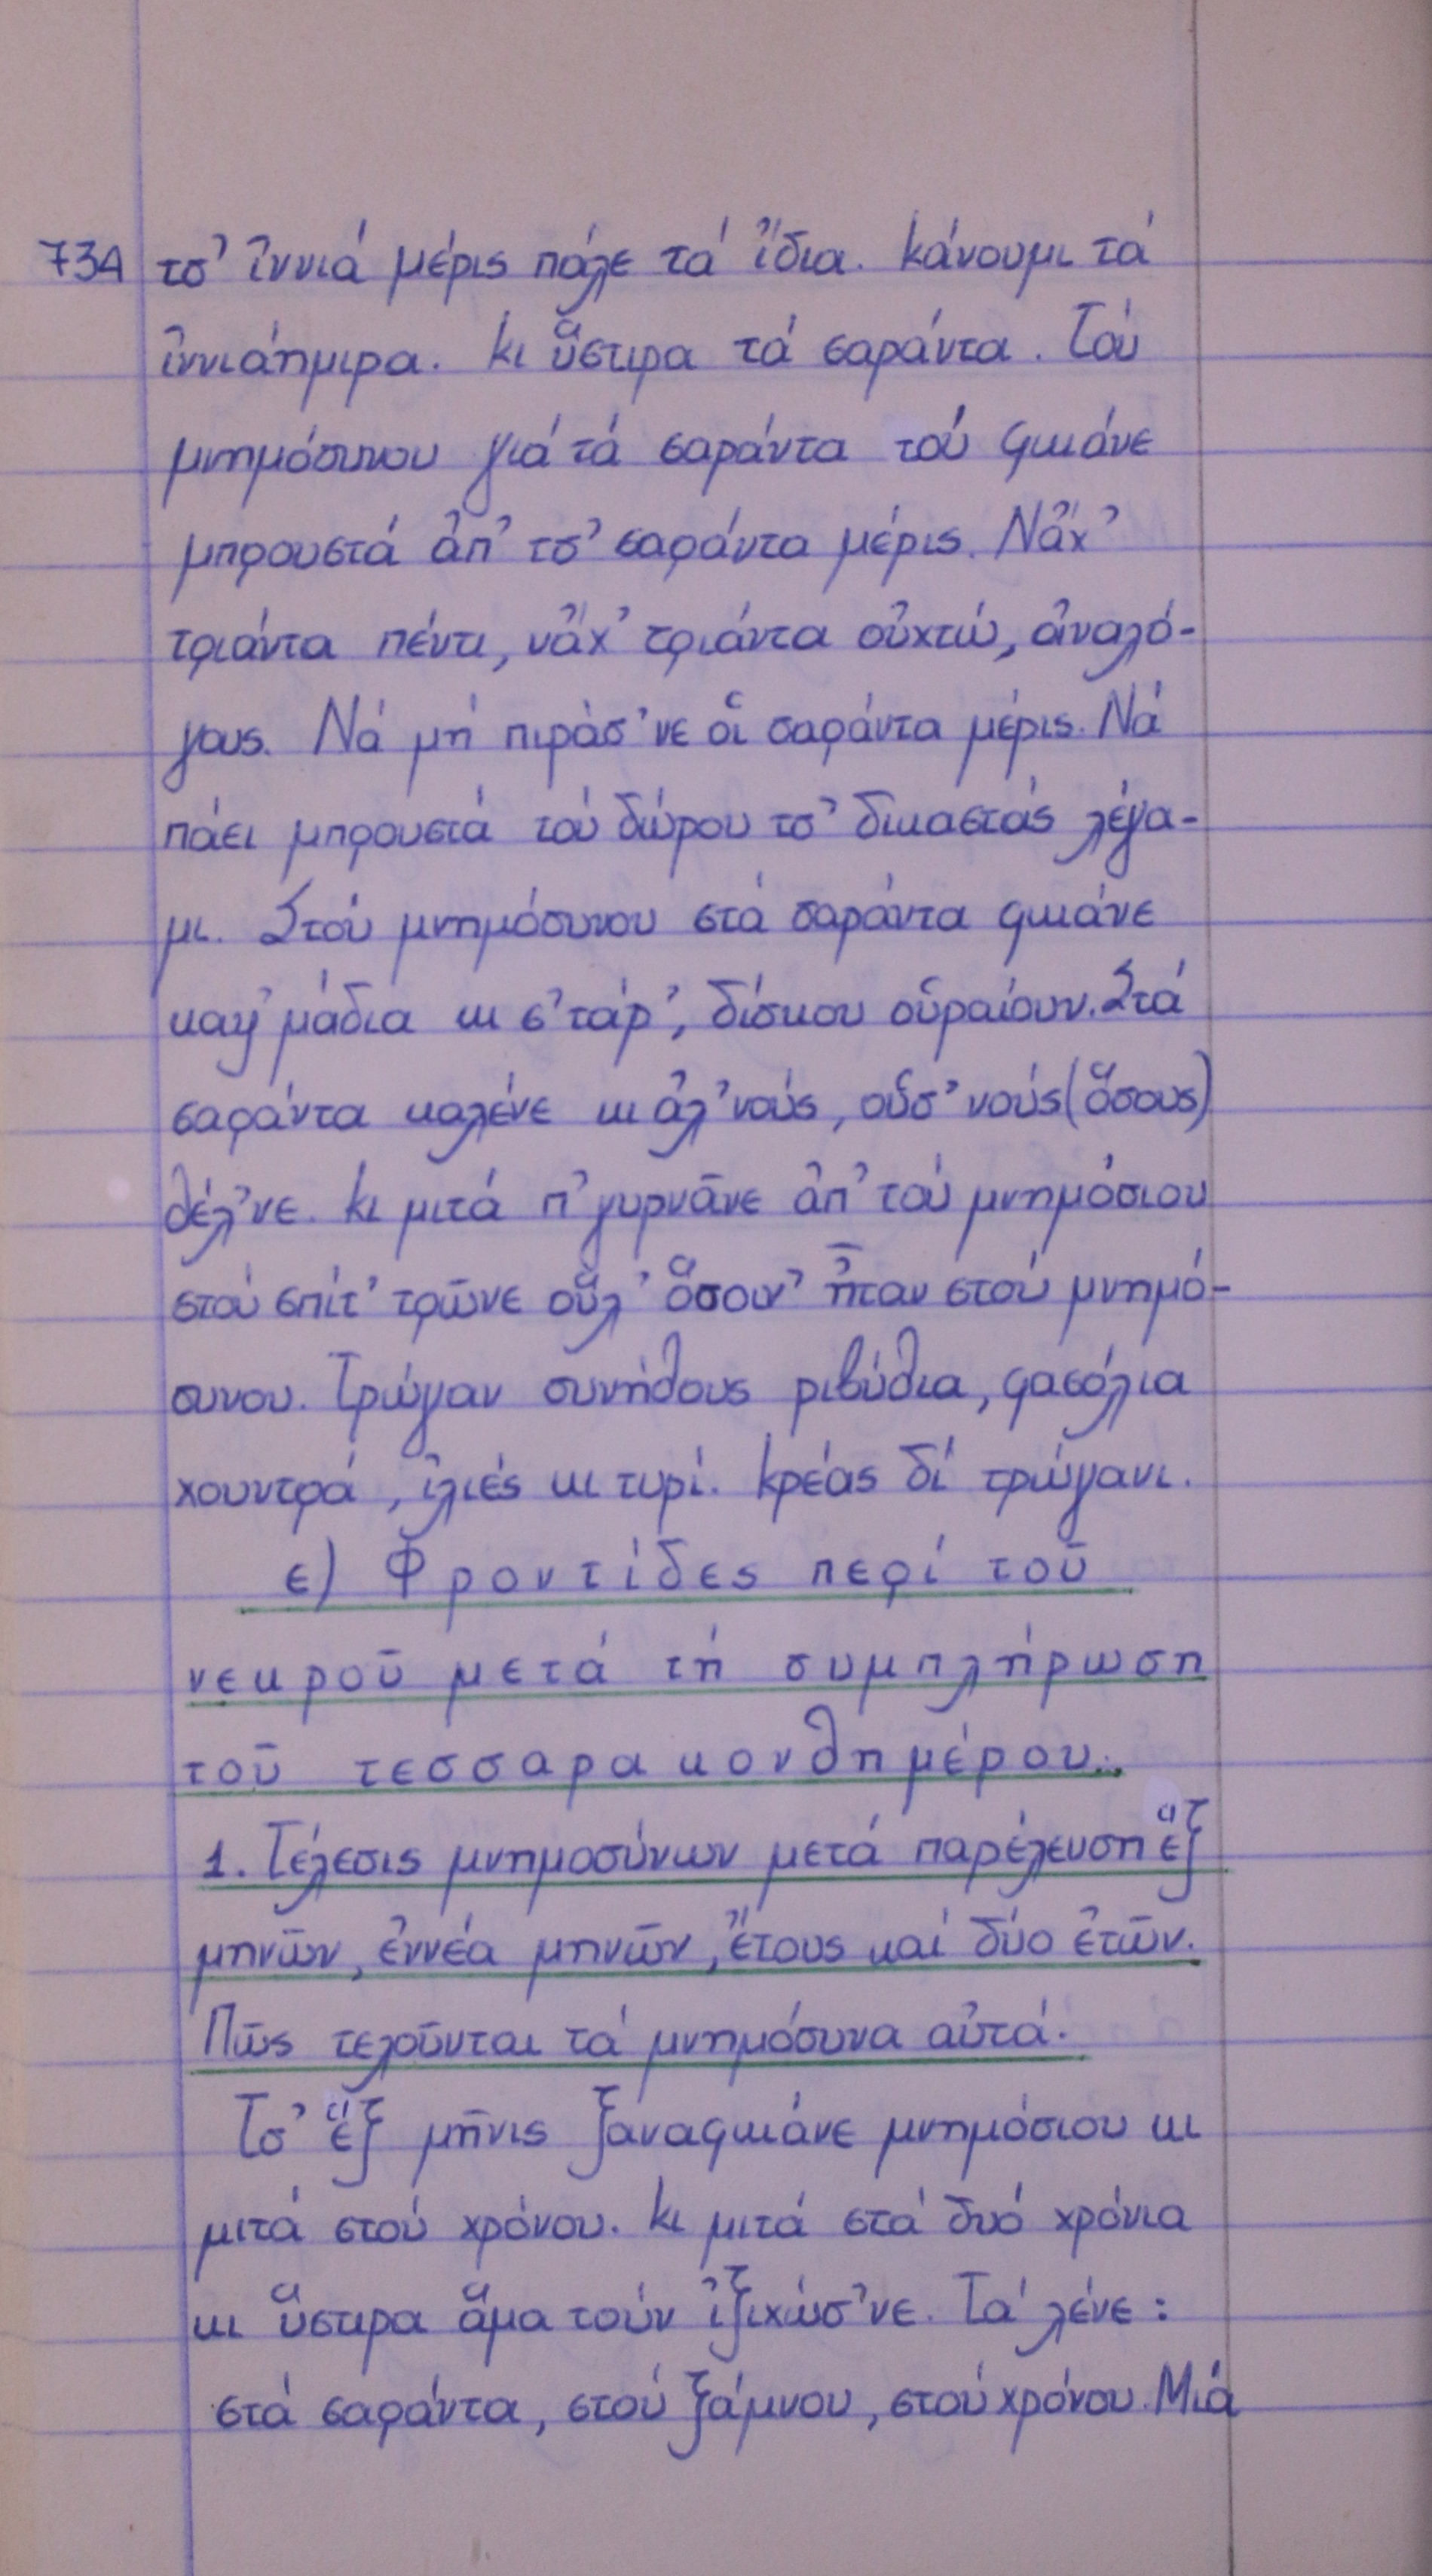 734 τσ' ἰννιά μέρις πάλε τά ἴδια. Κάνουμι τά
ἰννιάημιρα. Κι ὕστιρα τά σαράντα. Τού
μνημόσυνου γιά τά σαράντα τού φκιάνε
μπρουστά ἀπ' τσ' σαράντα μέρις. Νἄχ'
τριάντα πέντι, νἄχ' τριάντα οὐχτώ, ἀναλό-
γους. Νά μή πιράσ'νε οἱ σαράντα μέρις. Νά
πάει μπρουστά τού δώρου τσ' δικαστάς λέγα-
μι. Στού μνημόσυνου στά σαράντα φκιάνε
καψ'μάδια κι σ'τάρ', δίσκου οὑραίουν. Στά
σαράντα καλένε κι ἀλ'νούς, οὑσ'νούς (ὅσους)
θέλ'νε. Κι μιτά π' γυρνᾶνε ἀπ' τού μνημόσιου
στού σπίτ' τρῶνε οὕλ' ὅσοιν' ἦταν στού μνημό-
συνου. Τρώγαν συνήθους ριβύθια, φασόλια
χουντρά, ἰλιές κι τυρί. Κρέας δί τρώγανι.
ε) Φροντίδες περί τοῦ
νεκροῦ μετά τή συμπλήρωση
τοῦ τεσσαρακονθημέρου.
1. Τέλεσις μνημοσύνων μετά παρέλευση ἕξ
μηνῶν, ἐννέα μηνῶν, ἔτους καί δύο ἐτῶν.
Πῶς τελοῦνται τά μνημόσυνα αὐτά.
Τσ' ἕξ μῆνις ξαναφκιάνε μνημόσιου κι
μιτά στού χρόνου. Κι μιτά στά δυό χρόνια
κι ὕστιρα ἅμα τούν ἰξιχώσ'νε. Τά λένε:
στά σαράντα, στού ξάμνου, στού χρόνου. Μιά